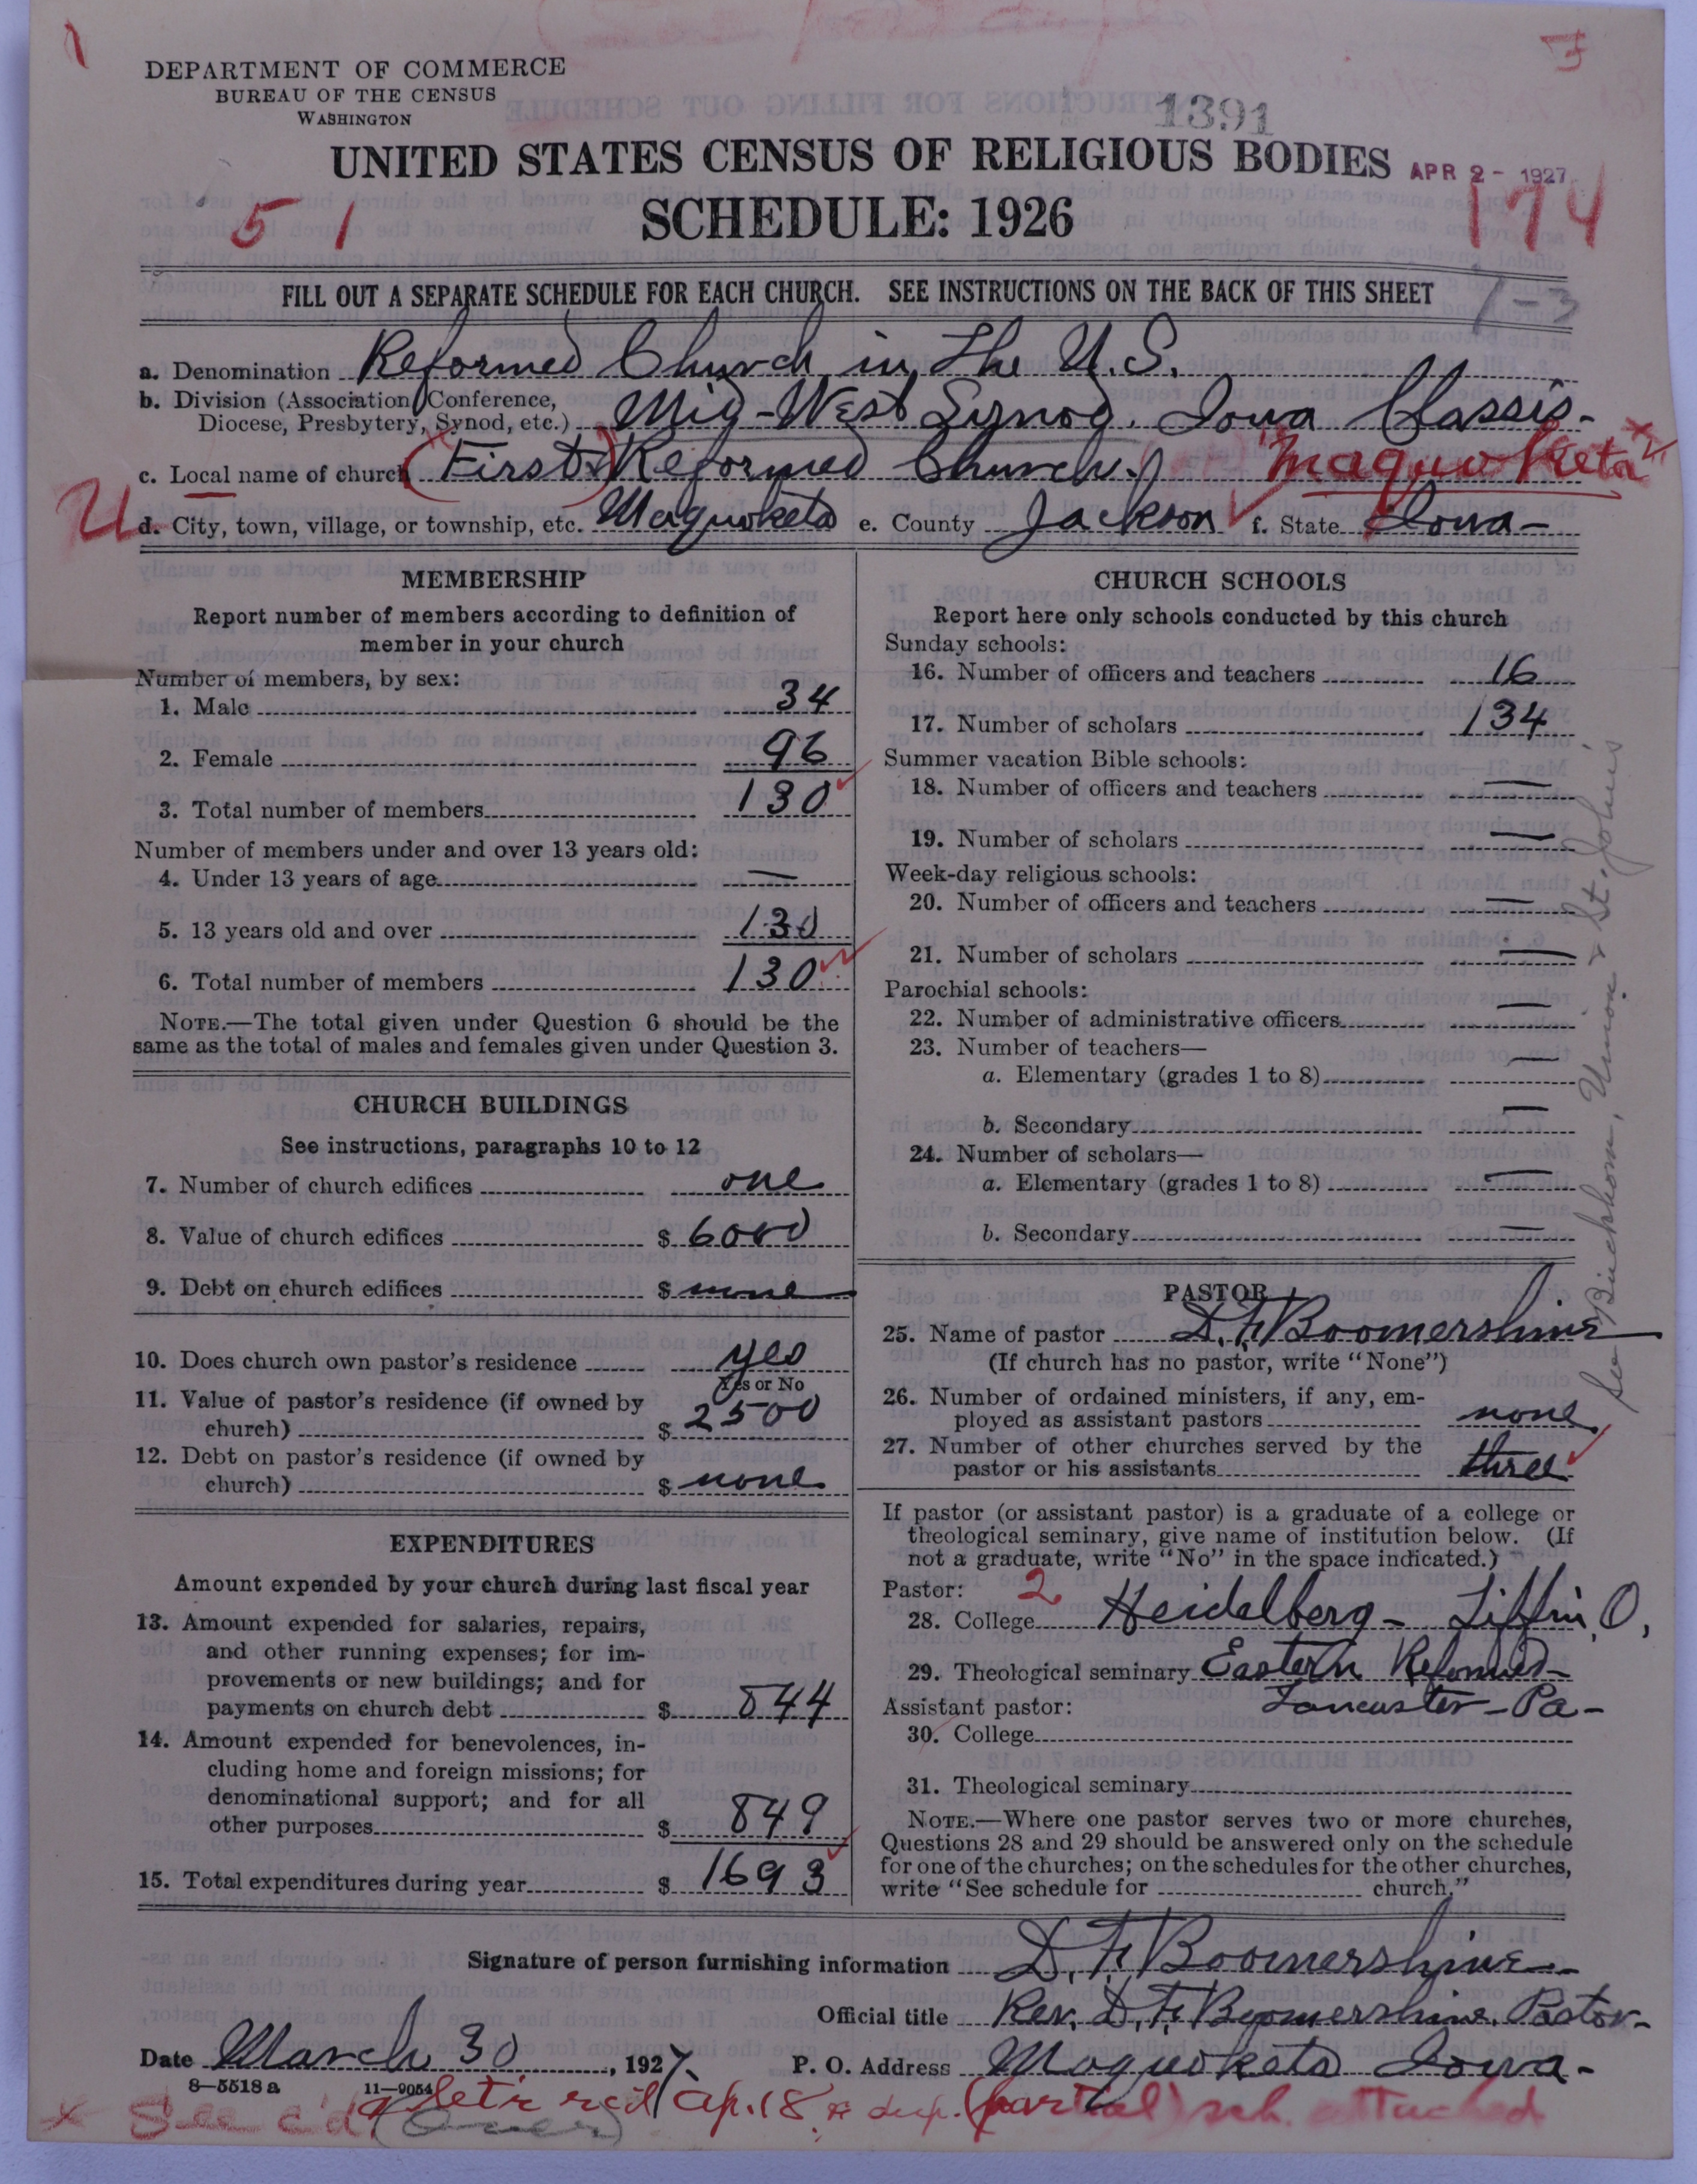 DEPARTMENT OF COMMERCE
BUREAU OF THE CENSUS
WASHINGTON
1391
UNITED STATES CENSUS OF RELIGIOUS BODIES
APR 2 - 1927
SCHEDULE: 1926
51
174
FILL OUT A SEPARATE SCHEDULE FOR EACH CHURCH. SEE INSTRUCTIONS ON THE BACK OF THIS SHEET
7-3
a. Denomination Reformed Church in The U.S.
b. Division (Association, Conference, Diocese, Presbytery, Synod, etc.) Mid-West Synod. Iowa Classis-
c. Local name of church (First) Reformed Church. Maquoketa
U
d. City, town, village, or township, etc. Maquoketa e. County Jackson f. State Iowa-
MEMBERSHIP
Report number of members according to definition of
member in your church
Number of members, by sex:
1. Male 34
2. Female 96
3. Total number of members 130
Number of members under and over 13 years old:
4. Under 13 years of age —
5. 13 years old and over 130
6. Total number of members 130
NOTE.—The total given under Question 6 should be the
same as the total of males and females given under Question 3.
CHURCH BUILDINGS
See instructions, paragraphs 10 to 12
7. Number of church edifices one
8. Value of church edifices $ 6000
9. Debt on church edifices $ none
10. Does church own pastor's residence yes
Yes or No
11. Value of pastor's residence (if owned by
church) $ 2500
12. Debt on pastor's residence (if owned by
church) $ none
EXPENDITURES
Amount expended by your church during last fiscal year
13. Amount expended for salaries, repairs,
and other running expenses; for im-
provements or new buildings; and for
payments on church debt $ 844
14. Amount expended for benevolences, in-
cluding home and foreign missions; for
denominational support; and for all
other purposes $ 849
15. Total expenditures during year $ 1693
CHURCH SCHOOLS
Report here only schools conducted by this church
Sunday schools:
16. Number of officers and teachers 16
17. Number of scholars 134
Summer vacation Bible schools:
18. Number of officers and teachers —
19. Number of scholars —
Week-day religious schools:
20. Number of officers and teachers —
21. Number of scholars —
Parochial schools:
22. Number of administrative officers —
23. Number of teachers—
a. Elementary (grades 1 to 8) —
b. Secondary —
24. Number of scholars—
a. Elementary (grades 1 to 8) —
b. Secondary —
See Buckhorn, Union & St. John's
PASTOR
25. Name of pastor D. F. Boomershine
(If church has no pastor, write "None")
26. Number of ordained ministers, if any, em-
ployed as assistant pastors none
27. Number of other churches served by the
pastor or his assistants three
If pastor (or assistant pastor) is a graduate of a college or
theological seminary, give name of institution below. (If
not a graduate, write "No" in the space indicated.)
Pastor: 2
28. College Heidelberg - Tiffin, O.
29. Theological seminary Eastern Reformed-
Lancaster - Pa -
Assistant pastor:
30. College
31. Theological seminary
NOTE.—Where one pastor serves two or more churches,
Questions 28 and 29 should be answered only on the schedule
for one of the churches; on the schedules for the other churches,
write "See schedule for church."
Signature of person furnishing information D. F. Boomershine
Official title Rev. D. F. Boomershine. Pastor-
Date March 30, 1927. P. O. Address Maquoketa Iowa-
8-5518 a 11-9054
x See c'd (over) let'r rec'd ap. 18 & dup. (partial) sch. attached